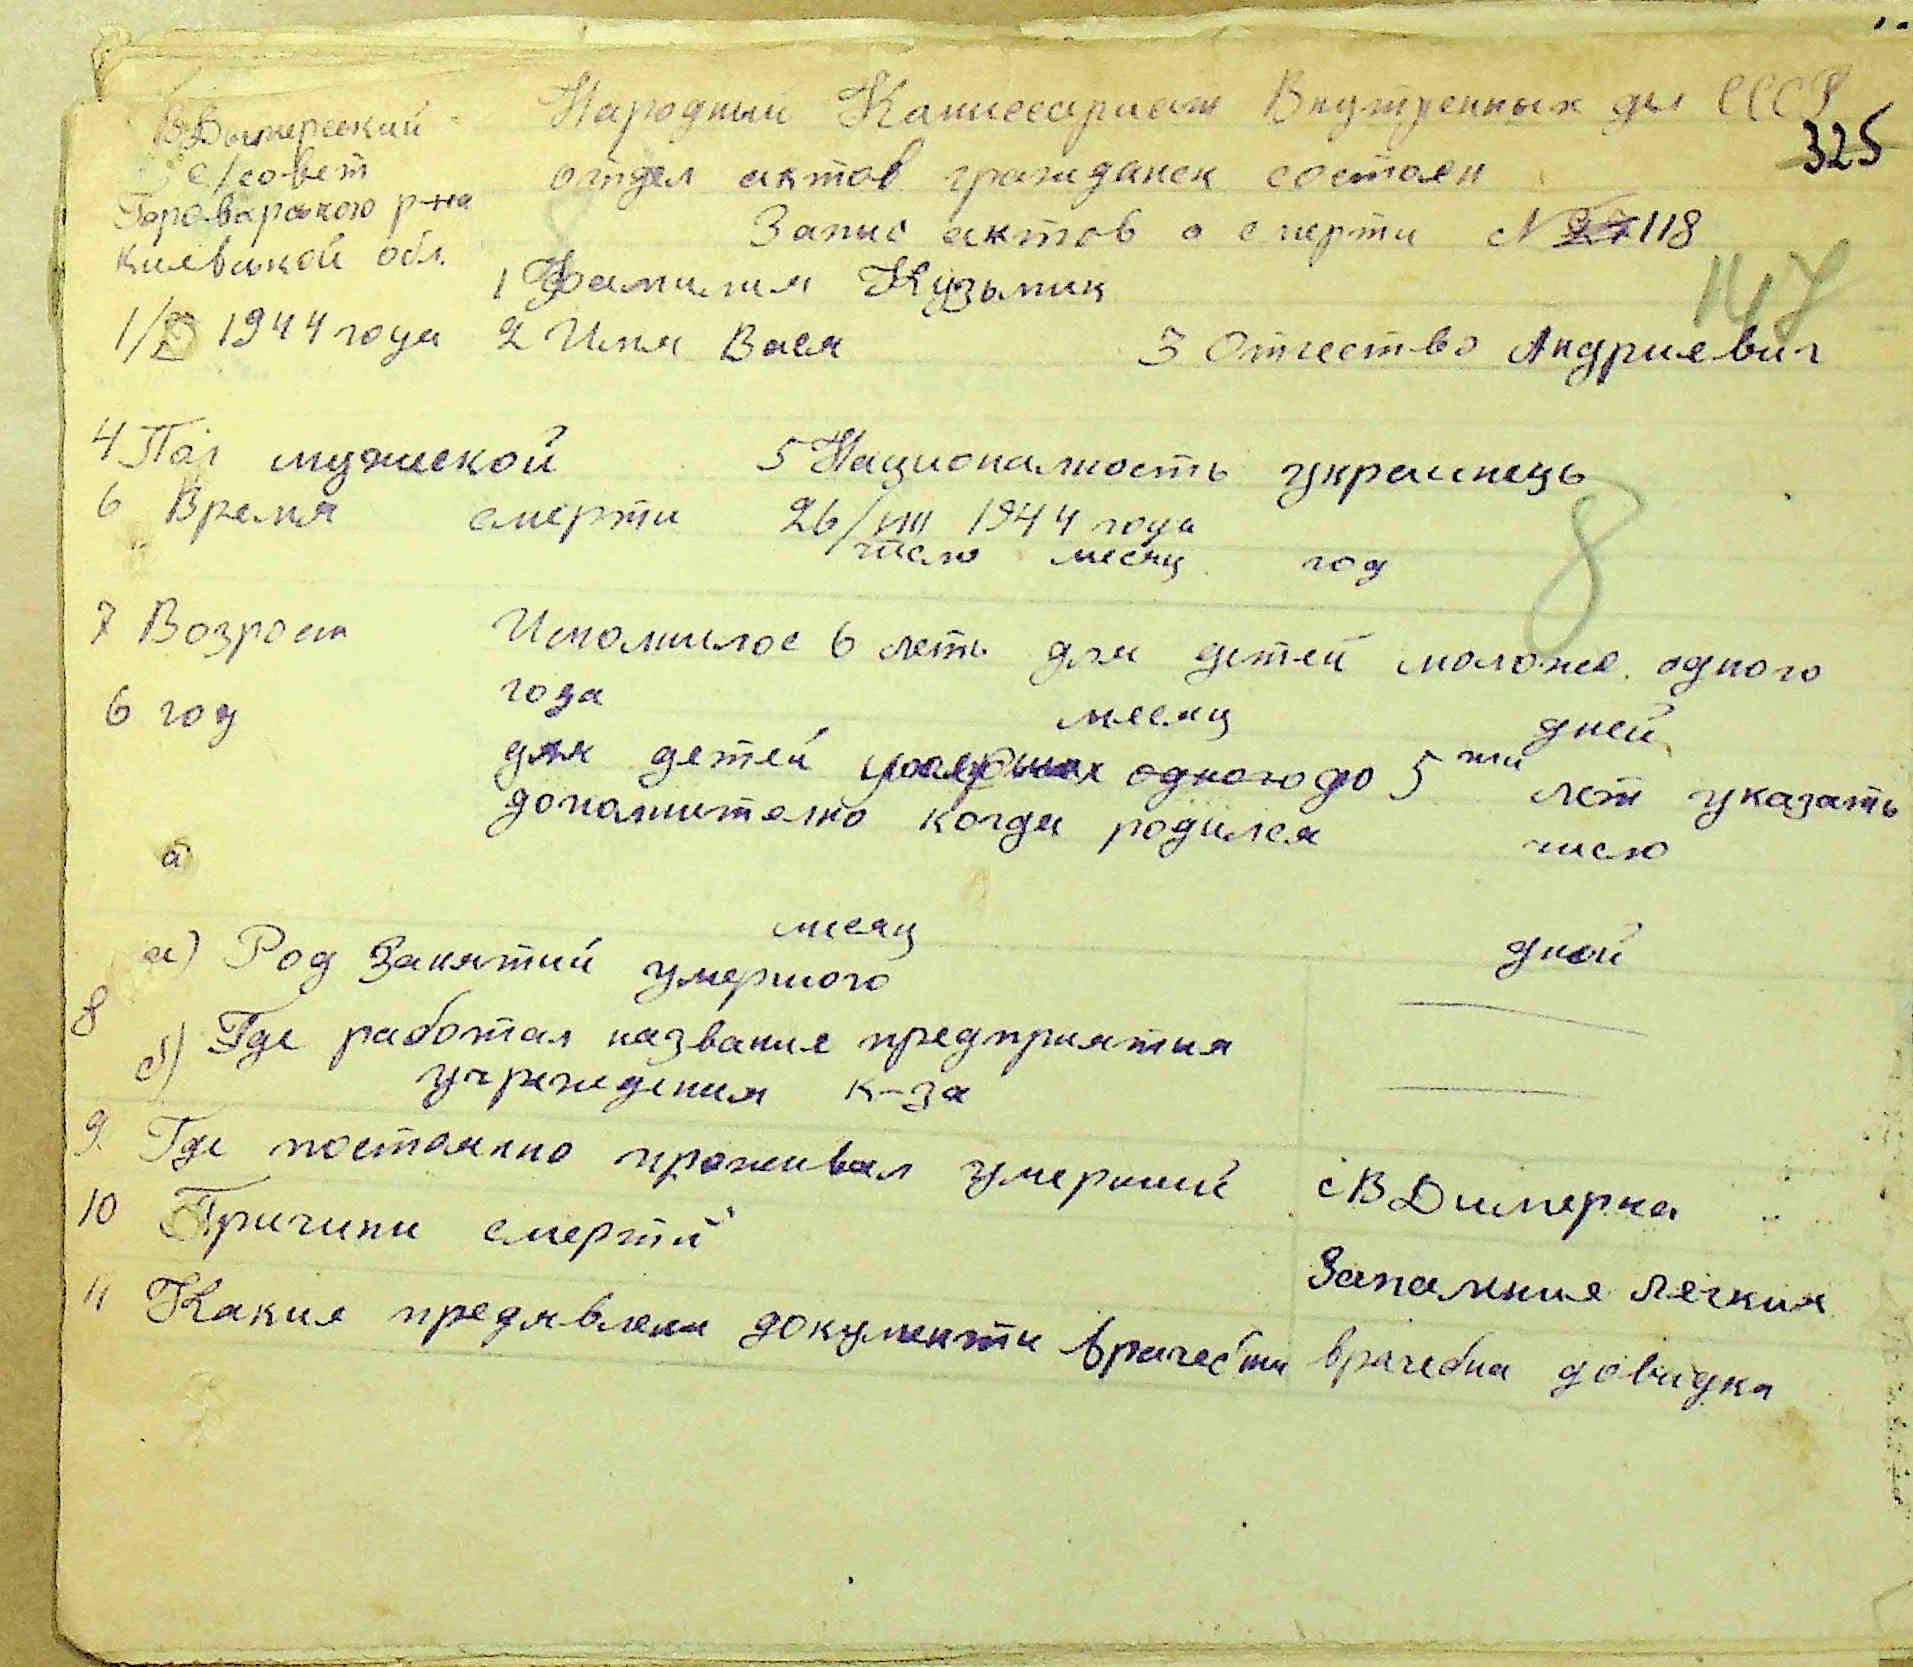 Народный Комиссариат Внутренных дел СССР
325
В Дымерский
с/совет
отдел актов гражданск состоян
Броварського р-на
Запис актов о смерти № 118
Киевской обл.
147
1 Фамилия Кузьмик
1/ 1944 года
2 Имя Вася 3 Отчество Андриевич
4 Пол мужиской 5 Национальность украинець
6 Время смерти 26/VIII 1944 года
число месяц год
8
7 Возраст Исполнилос 6 леть для детей моложе одного
6 год года месяц дней
для детей одного до 5 ти лет указать
дополнително когда родился число
а
месяц дной
а) Род Занятий умершого
8
б) Где работал название предприятия
учреждения к-за
9. Где постоянно проживал умерший с В Димерка
10 Причини смерти Запаление легких
11 Какие предявлени документи врачебни врачебна довидка